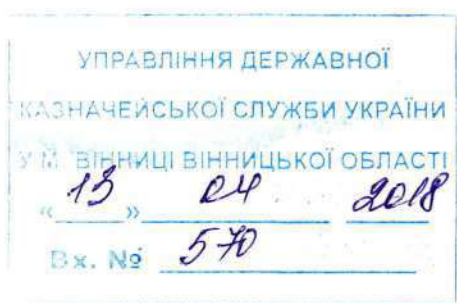 УПРАВЛІННЯ ДЕРЖАВНОЇ
КАЗНАЧЕЙСЬКОЇ СЛУЖБИ УКРАЇНИ
У М. ВІННИЦІ ВІННИЦЬКОЇ ОБЛАСТІ
« 13 » 04 2018
Вх. № 570